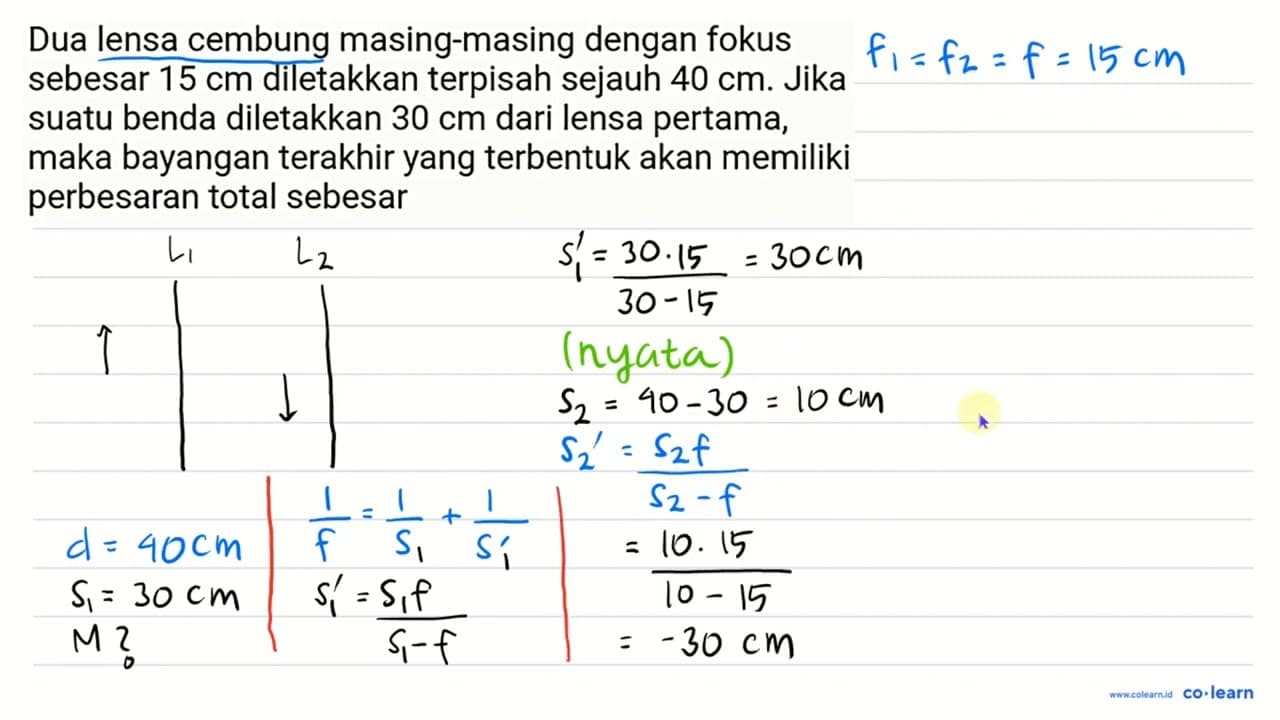 Dua lensa cembung masing-masing dengan fokus
sebesar 15 cm diletakkan terpisah sejauh 40 cm. Jika
suatu benda diletakkan 30 cm dari lensa pertama,
maka bayangan terakhir yang terbentuk akan memiliki
perbesaran total sebesar
f₁ = f₂ = f = 15 cm
L₁ L₂
d = 40 cm
S₁ = 30 cm
M ?
1/f = 1/S₁ + 1/S₁'
S₁' = S₁f / S₁-f
S₁' = 30.15 / 30-15 = 30 cm
(nyata)
S₂ = 40-30 = 10 cm
S₂' = S₂f / S₂-f
= 10.15 / 10-15
= -30 cm
www.colearn.id co·learn